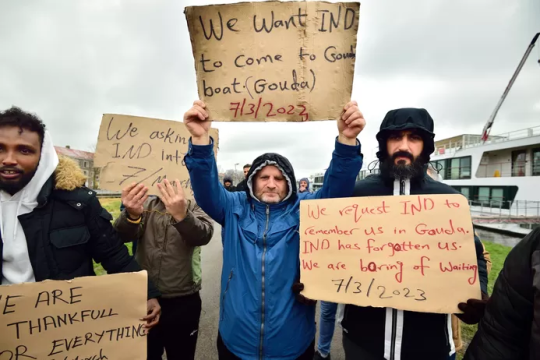 We Want IND
to come to Gouda
boat.(Gouda)
7/3/2023
We asking
IND Int
7/Mar
We request IND to
remember us in Gouda.
IND has forgotten us.
We are boring of Waiting
7/3/2023
WE ARE
THANKFULL
FOR EVERYTHING
March